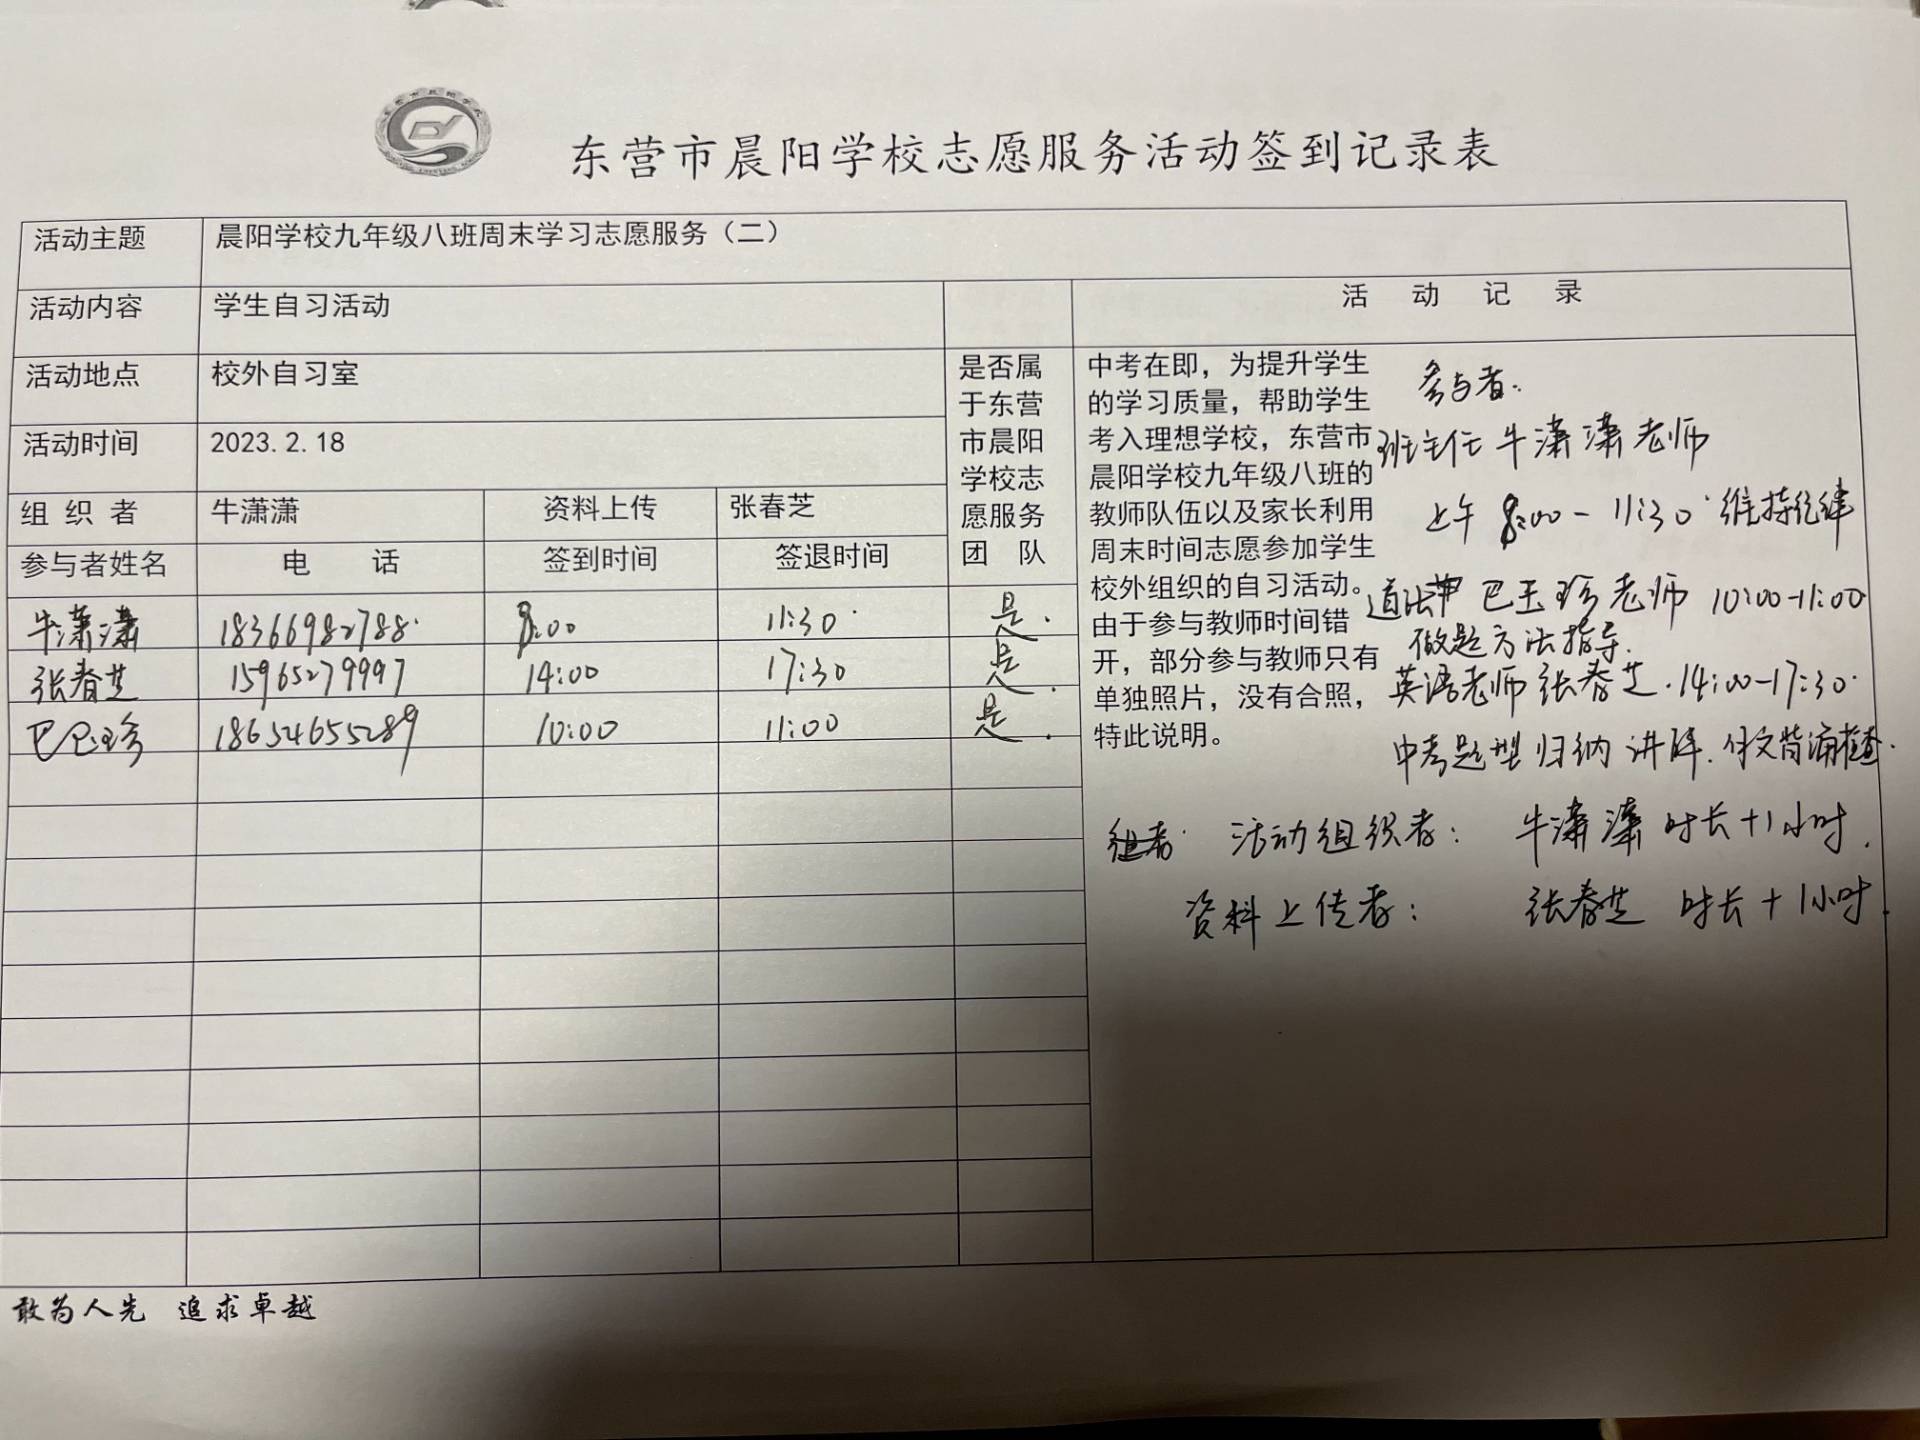 东营市晨阳学校志愿服务活动签到记录表
活动主题 晨阳学校九年级八班周末学习志愿服务（二）
活动内容 学生自习活动
活动地点 校外自习室
活动时间 2023.2.18
组织者 牛潇潇 资料上传 张春芝
参与者姓名 电话 签到时间 签退时间
是否属
于东营
市晨阳
学校志
愿服务
团队
牛潇潇 18366982788 8:00 11:30 是.
张春芝 15965279997 14:00 17:30 是.
巴玉珍 18654655289 10:00 11:00 是.
活动记录
中考在即，为提升学生
的学习质量，帮助学生
考入理想学校，东营市
晨阳学校九年级八班的
教师队伍以及家长利用
周末时间志愿参加学生
校外组织的自习活动。
由于参与教师时间错
开，部分参与教师只有
单独照片，没有合照，
特此说明。
参与者:
班主任牛潇潇老师
上午 8:00-11:30 维持纪律
道法 巴玉珍老师 10:00-11:00
做题方法指导.
英语老师张春芝.14:00-17:30
中考题型归纳讲解.作文背诵检查.
活动组织者: 牛潇潇 时长+1小时.
资料上传者: 张春芝 时长+1小时.
敢为人先 追求卓越